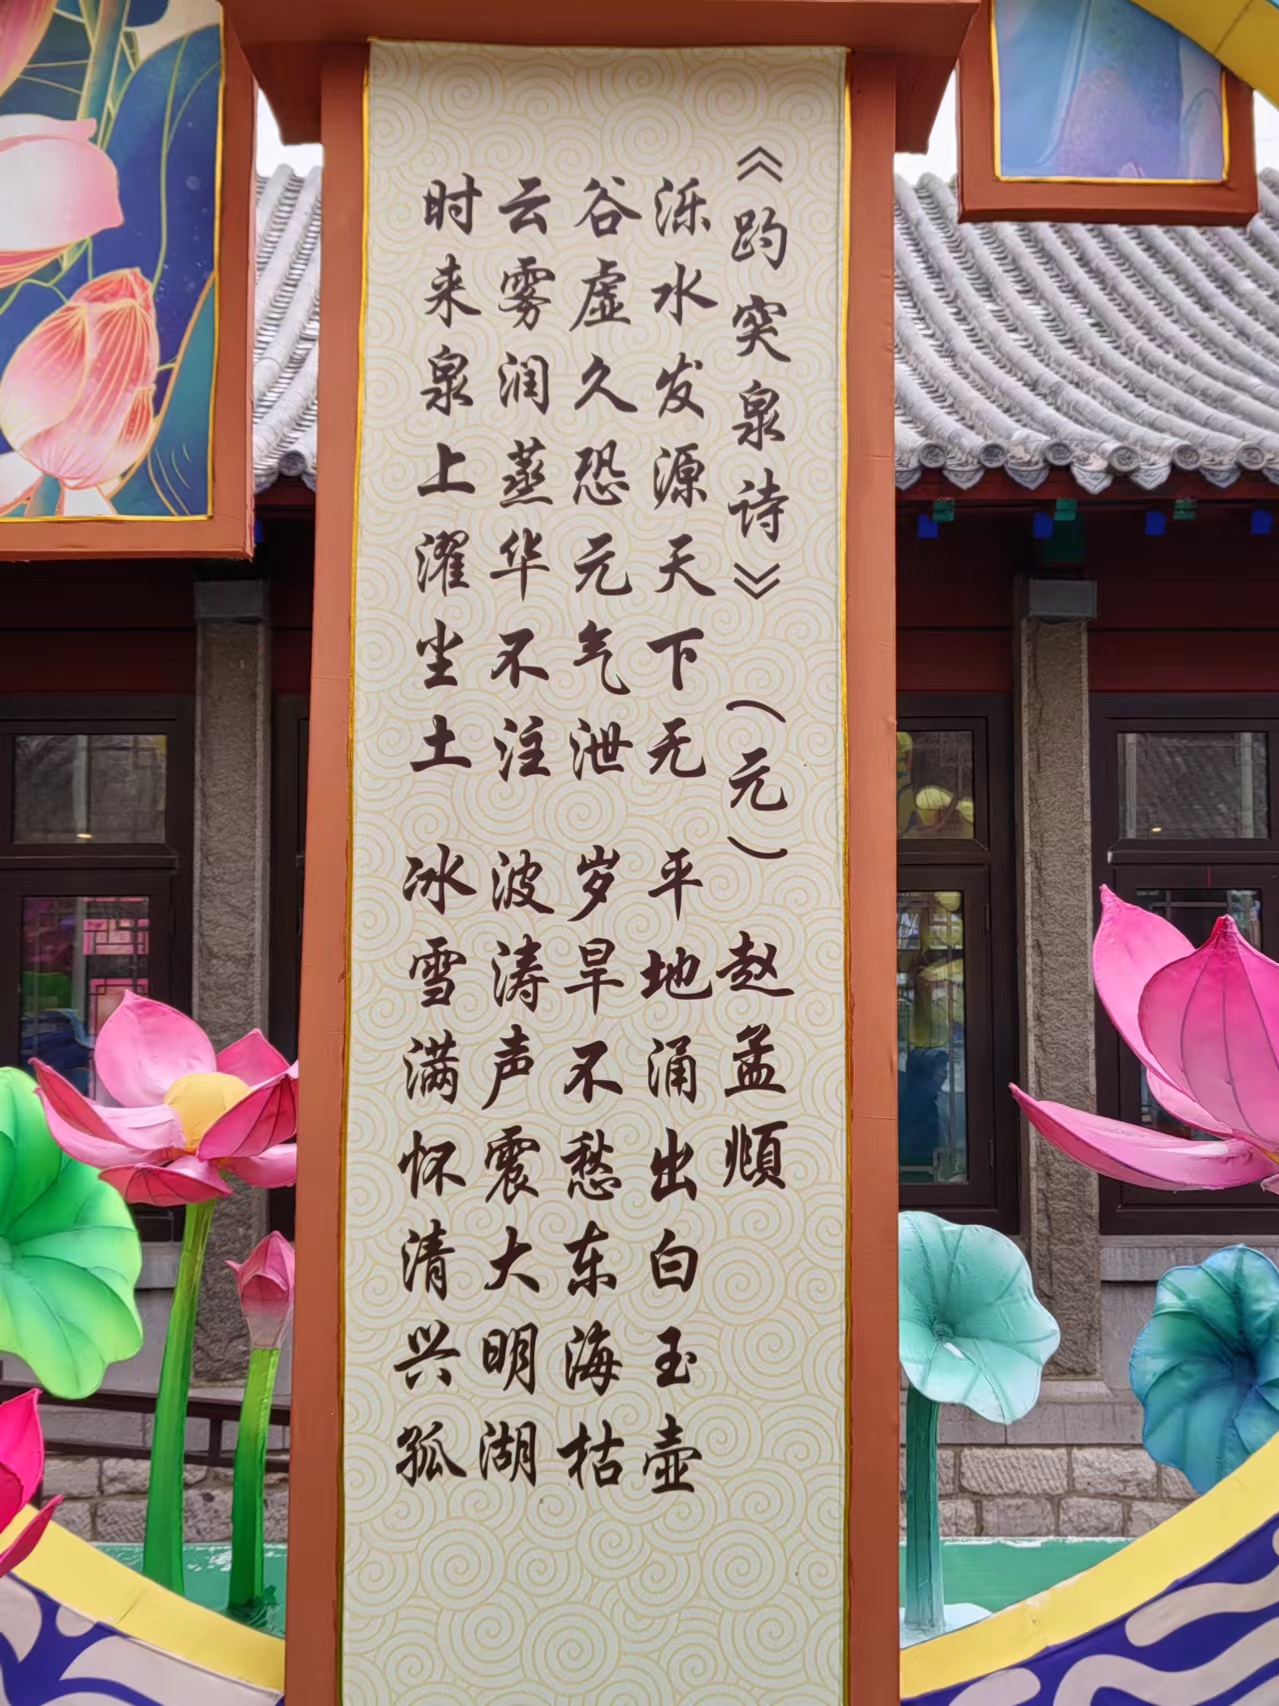 《趵突泉诗》（元）赵孟頫
泺水发源天下无 平地涌出白玉壶
谷虚久恐元气泄 岁旱不愁东海枯
云雾润蒸华不注 波涛声震大明湖
时来泉上濯尘土 冰雪满怀清兴孤